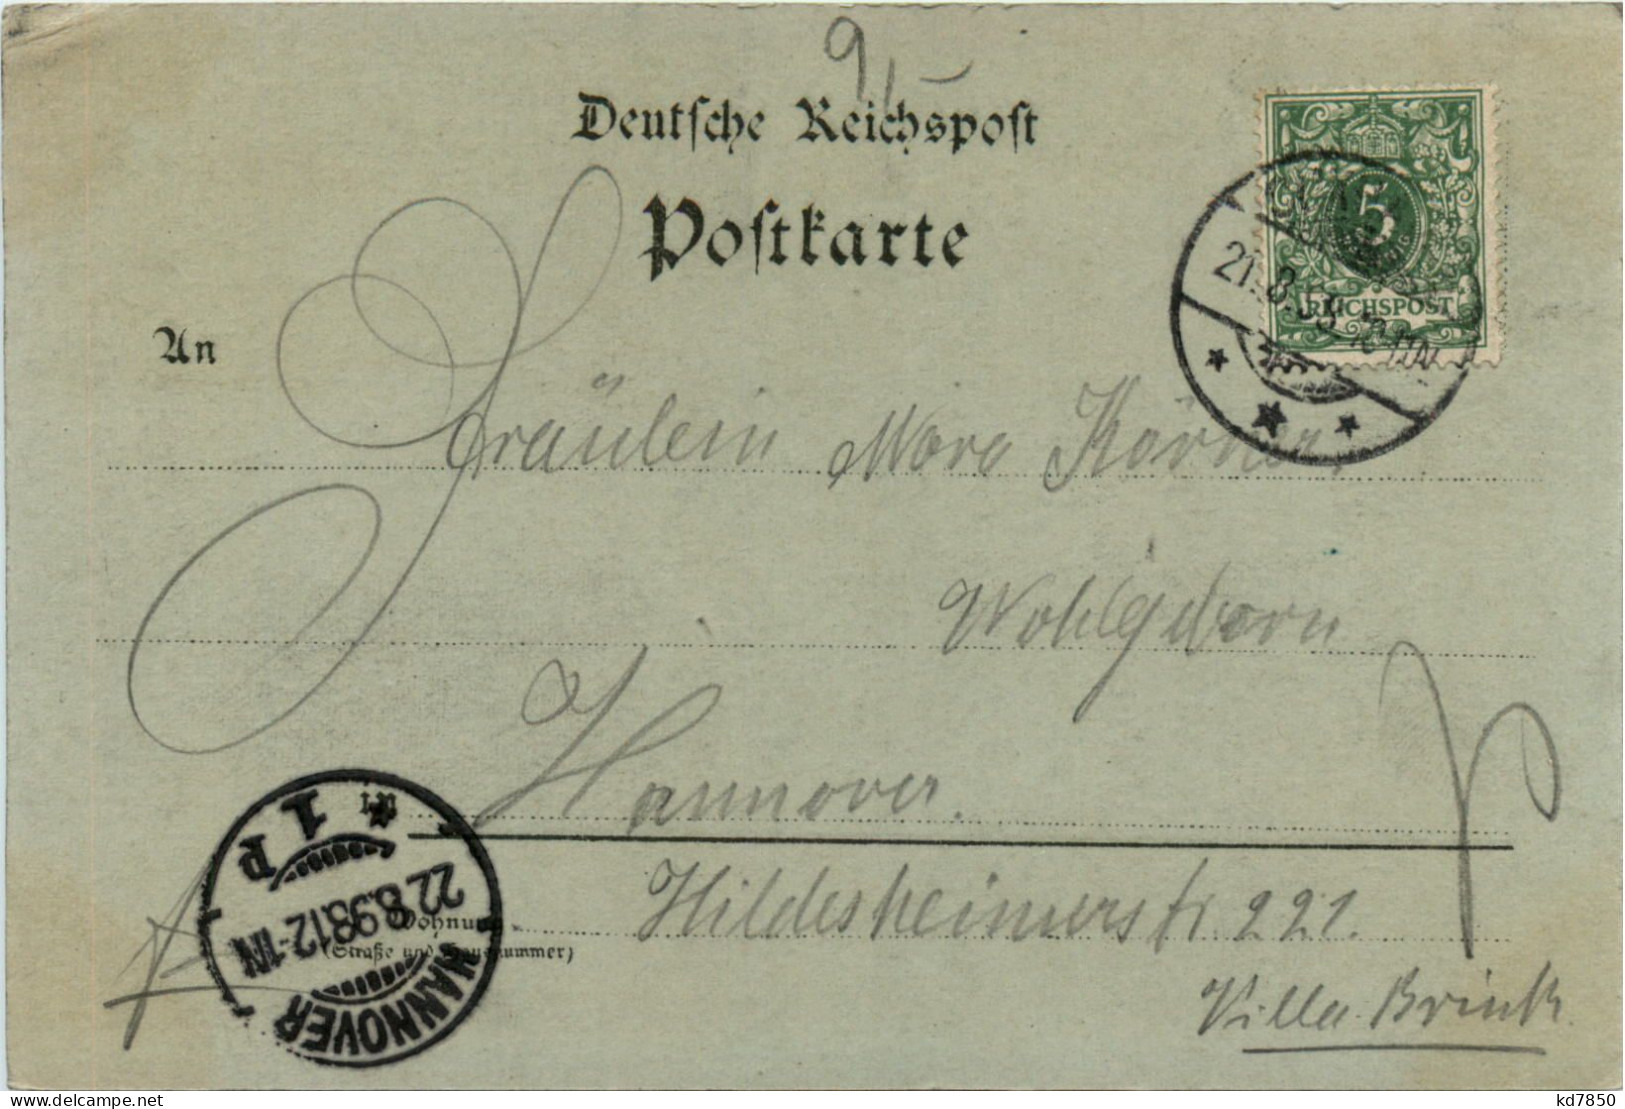 9,-
Deutsche Reichspost
Postkarte
5
REICHSPOST
21.8.98
An
Fräulein Mara Körner,
Wohlgeborn
Hannover.
Wohnung
(Straße und Hausnummer)
Hildesheimerstr 221.
Villa Brink
HANNOVER
22.8.98.12-1N
1 P
kd7850